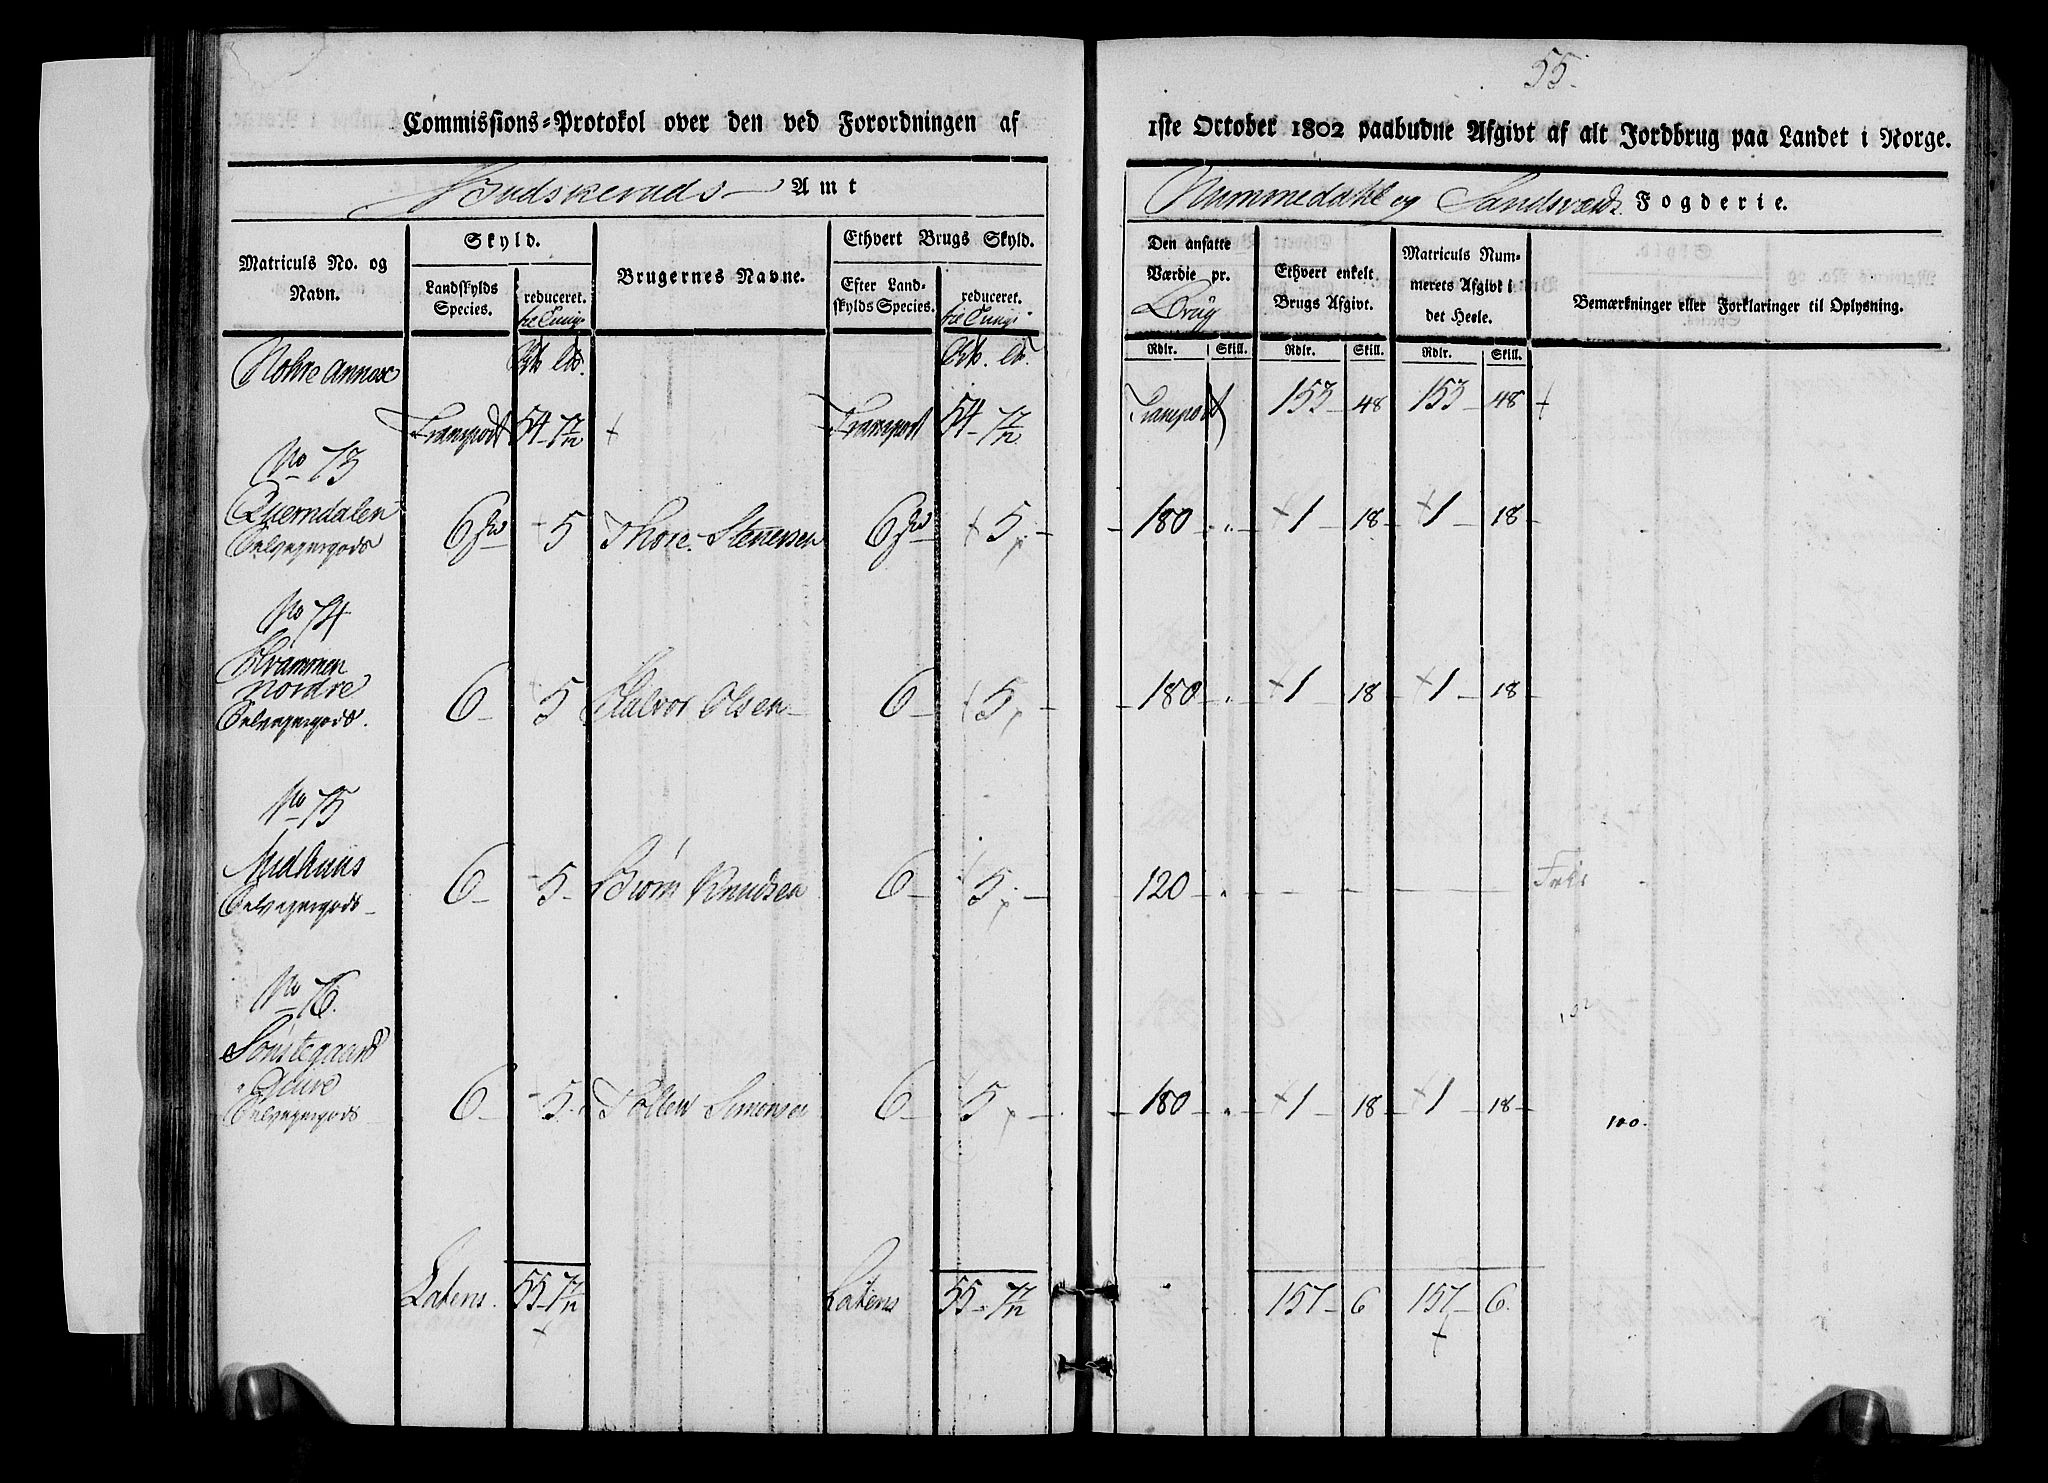 55.
Commissions-Protokol over den ved Forordningen af
1ste October 1802 paabudne Afgivt af alt Jordbrug paa Landet i Norge.
Budskeruds Amt
Nummedahl og Sandsværds Fogderie.
Matriculs No. og Navn.
Skyld.
Landskylds Species.
reduceret.
til Tunge
Brugernes Navne.
Ethvert Brugs Skyld.
Efter Landskylds Species.
reduceret.
til Tunge
Den ansatte Værdie pr.
Brug
Ethvert enkelt Brugs Afgivt.
Matriculs Nummerets Afgivt i det Heele.
Bemærkninger eller Forklaringer til Oplysning.
Rdlr. Skill. Rdlr. Skill. Rdlr. Skill.
Nohre Annex
Transport 54 - 7/12 Transport 54 - 7/12 Transport 153 - 48 153 - 48
No 73
Qverndalen
Selveyergods 6 - 5 Thore Stenersen 6 - 5 - 180 - 1 - 18 - 1 - 18 -
No 74
Strammen
Nordre
Selveyergods. 6 - 5 Halvor Olsen - 6 - 5 - 180 - 1 18 - 1 - 18 -
No 75
Midhuus
Selveyergods - 6 - 5 - Biørn Knudsen 6 - 5 - 120 - Frie
No 76.
Sønstegaard
Øvre
Selveyergods 6 - 5 - Tollew Simensen 6 - 5 - 180 - 1 - 18 - 1 - 18 -
100.
Latens. 55 - 7/12 Latens 55 - 7/12 157 - 6 157 - 6.